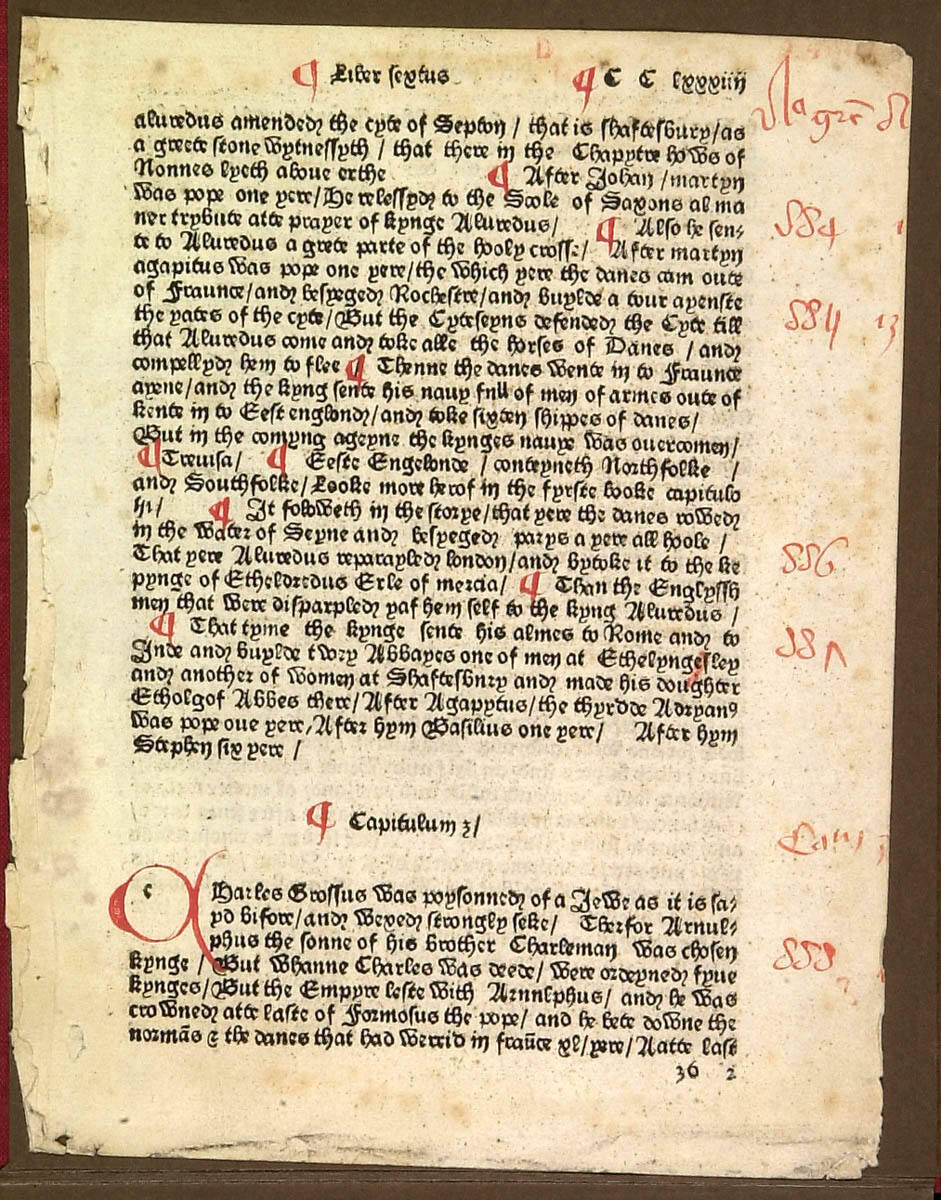 ¶ Liber sextus ¶ C C lxxxiiij
aluredus amended the cyte of Septon / that is shaftesbury/as
a greete stone wytnessyth / that there in the Chapytre hows of
Nonnes lyeth aboue erthe ¶ After Johan /martyn
was pope one yere/He relessyd to the Scole of Saxons al ma
ner trybute atte prayer of kynge Aluredus/ ¶ Also he sen⸗
te to Aluredus a grete parte of the hooly crosse/ After martyn
agapitus was pope one yere/the which yere the danes cam oute
of Fraunce/and besyeged Rochestre/and buylde a tour ayenste
the yates of the cyte/But the Cyteseyns defended the Cyte till
that Aluredus come and toke alle the horses of Danes /and
compellyd hem to flee ¶ Thenne the danes wente in to Fraunce
ayene/and the kyng sente his nauy fnll of men of armes oute of
kente in to Eest englond/and toke sixten shippes of danes/
But in the comyng ageyne the kynges nauye was ouercomen/
¶Treuisa/ ¶ Eeste Engelonde / conteyneth Northfolke /
and Southfolke/Looke more herof in the fyrste booke capitulo
/ ¶ It foloweth in the storye/that yere the danes rowed
in the water of Seyne and besyeged parys a yere all hoole /
That yere Aluredus reparayled london/and bytoke it to the ke
pynge of Etheldredus Erle of mercia/ ¶ Than the Englyssh
men that were disparpled yaf hem self to the kyng Aluredus /
¶ That tyme the kynge sente his almes to Rome and to
Inde and buylde twey Abbayes one of men at Ethelyngesley
and another of women at Shaftesbnry and made his doughter
Etholgof Abbes there/After Agapytus/the thyrdde Adryanꝯ
was pope oue yere/After hym Basilius one yere/ After hym
Stephen six yere /
¶ Capitulum 3/
c Harles Grossus was poysonned of a Jewe as it is sa⸗
yd bifore/and wexed strongly seke/ Therfor Arnul⸗
phus the sonne of his brother Charleman was chosen
kynge / But whanne Charles was deede/ were ordeyned fyue
kynges/But the Empyre lefte with Arnnlphus/ and he was
crowned atte laste of Formosus the pope/ and he bete downe the
normās & the danes that had werrid in frauce xl/yere/Aatte last
36 2
884
884 13
886
887
888